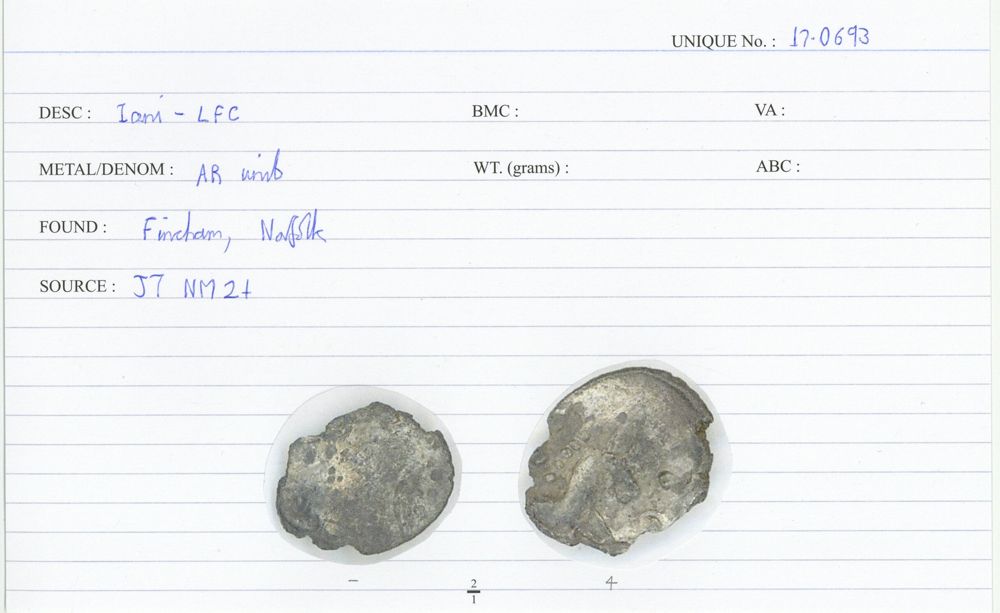 UNIQUE No. : 17-0693
DESC : Iceni - LFC BMC : VA :
METAL/DENOM : AR unit WT. (grams) : ABC :
FOUND : Fincham, Norfolk
SOURCE : JT NM 2+
– 2/1 4